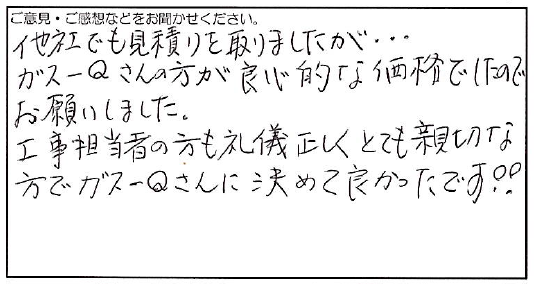 ご意見・ご感想などをお聞かせください。
他社でも見積りを取りましたが・・・
ガスーQさんの方が良心的な価格でしたので
お願いしました。
工事担当者の方も礼儀正しくとても親切な
方でガスーQさんに決めて良かったです!!